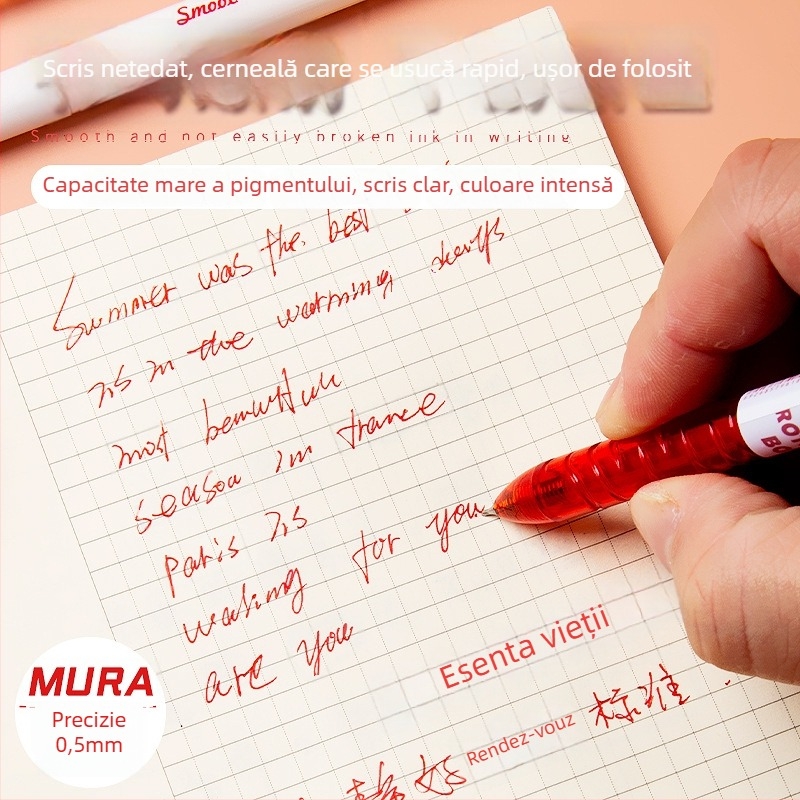 Smoo
Scris netedat, cerneală care se usucă rapid, ușor de folosit
Smooth and not easily broken ink in writing
Capacitate mare a pigmentului, scris clar, culoare intensă
Summer was the best
is in the warming
most
season in france
Paris is
waiting for you
are you
ROT
BO
Esenta vieții
Rendez-vouz 标准
好
MURA
Precizie
0,5mm